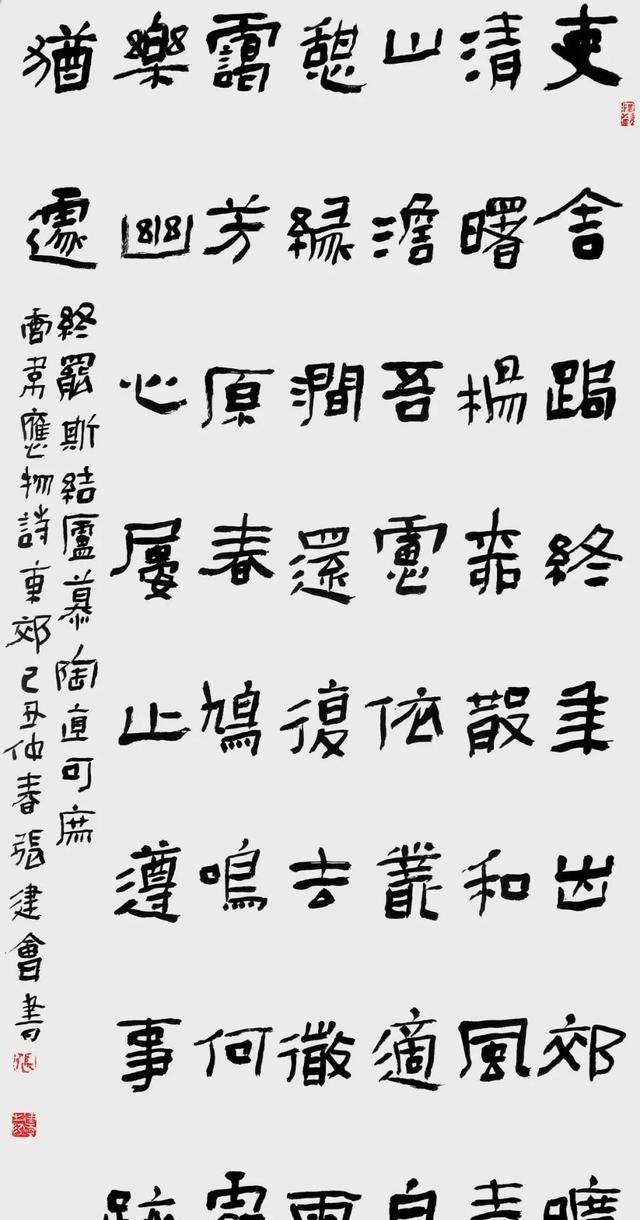 吏舍跼終年出郊曠
清曙楊柳散和風青
山澹吾慮依叢適自
憩緣澗還復去微雨
靄芳原春鳩鳴何處
樂幽心屢止遵事跡
猶遽
終罷斯結廬慕陶直可庶
韋應物詩東郊己丑仲春張建會書
張